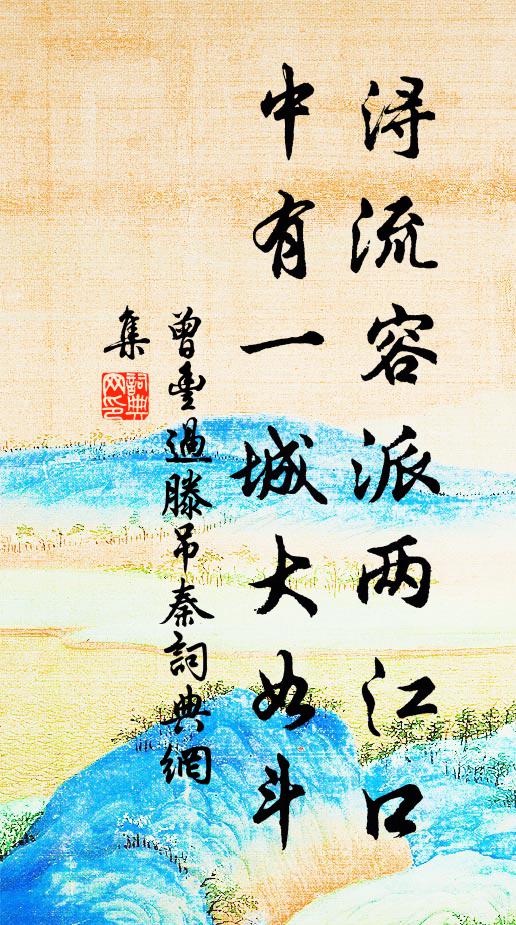 浔流容派两江口
中有一城大如斗
曾豐過滕吊秦詞典網
集
詞典網印